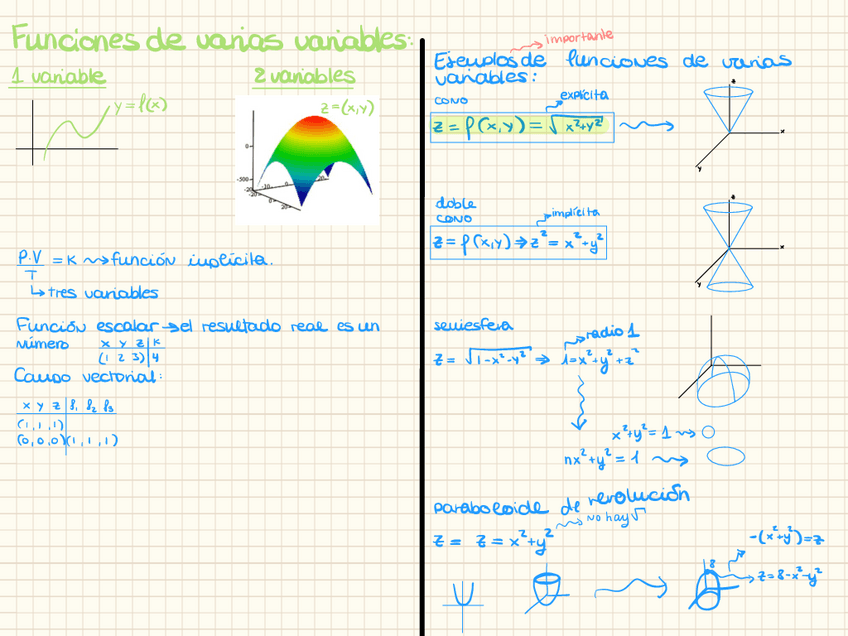 Funciones de varias variables:
1 variable
2 variables
y = f(x)
z = (x,y)
0
-300
-20
-10
0
-20
0
20
P.V/T = K ⇝ función implícita.
↳ tres variables
Función escalar → el resultado real es un
número
x y z | K
(1 2 3) | 4
Campo vectorial:
x y z | f₁ f₂ f₃
(1,1,1)
(0,0,0) (1,1,1)
importante
Ejemplos de funciones de varias
variables:
cono
explícita
z = f(x,y) = √x²+y²
x
y
doble
cono
implícita
z = f(x,y) ⇒ z² = x²+y²
x
y
semiesfera
radio 1
z = √1-x²-y² ⇒ 1=x²+y²+z²
x²+y² = 1 ⇝
nx²+y² = 1 ⇝
paraboloide de revolución
no hay √
z = z = x²+y²
-(x²+y²)=z
8
z=8-x²-y²